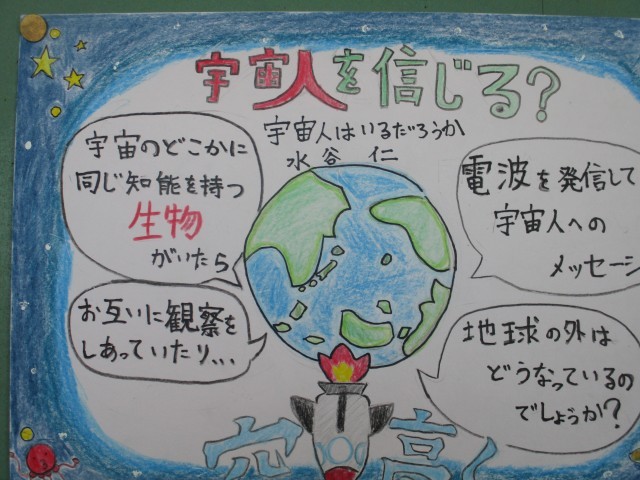 宇宙人を信じる?
宇宙人はいるだろうか
水谷 仁
宇宙のどこかに
同じ知能を持つ
生物
がいたら
電波を発信して
宇宙人への
メッセージ
お互いに観察を
しあっていたり、、、
地球の外は
どうなっているの
でしょうか?
空高く